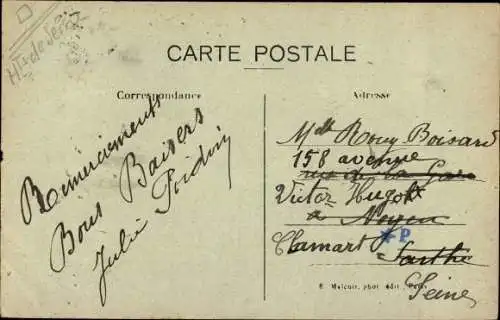 Hte de Seine
CARTE POSTALE
Correspondance
Adresse
Remerciements
Bons Baisers
Julie
Mlle Rouy Boisard
158 avenue
rue de la Gare
Victor Hugo
à Noyen
Clamart
*P
Sarthe
Seine
E. Malcuit, phot. édit., Paris